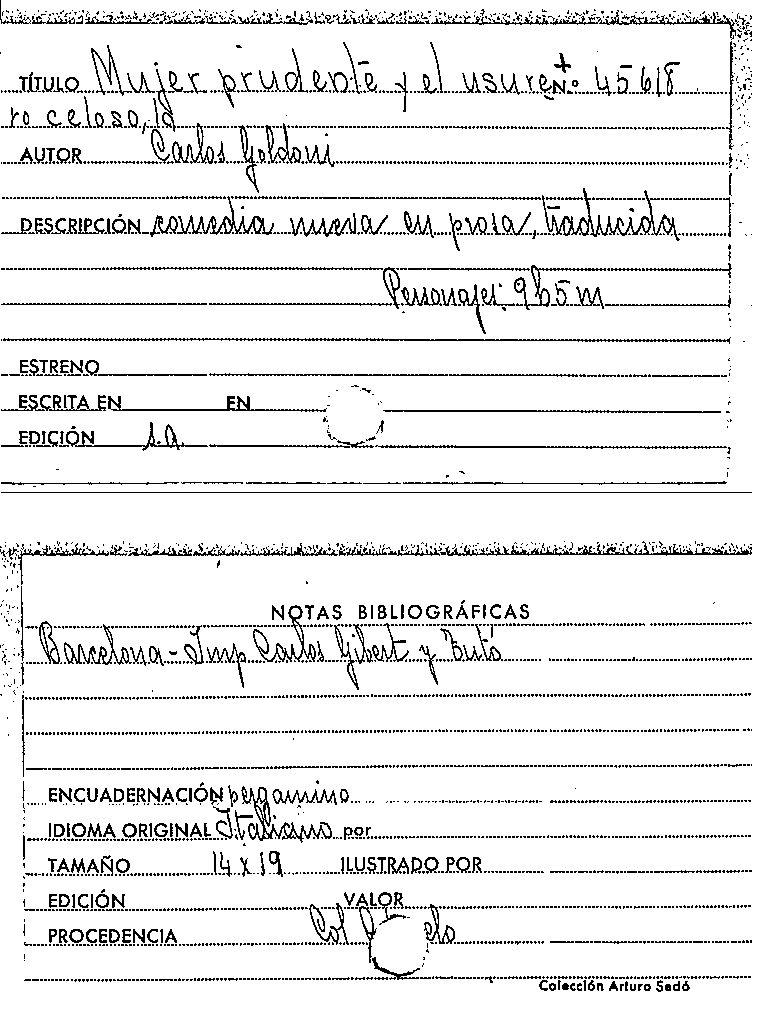 TÍTULO Mujer prudente y el usure Nº 45618
ro celoso, la
AUTOR Carlos Goldoni
DESCRIPCIÓN comedia nueva en prosa, traducida
Personajes: 9h5m
ESTRENO
ESCRITA EN EN
EDICIÓN s.a.
NOTAS BIBLIOGRÁFICAS
Barcelona-Imp Carlos Gibert y Tutó
ENCUADERNACIÓN pergamino
IDIOMA ORIGINAL Italiano por
TAMAÑO 14 x 19 ILUSTRADO POR
EDICIÓN VALOR
PROCEDENCIA Col
Colección Arturo Sedó